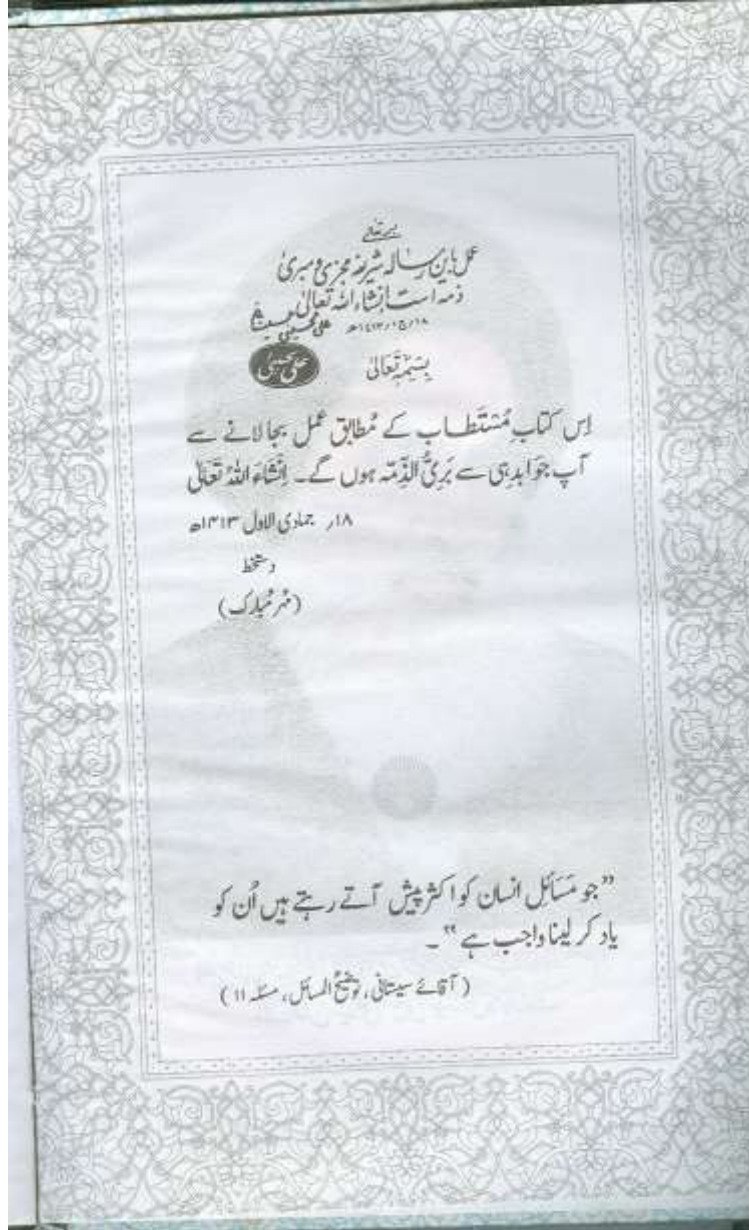 بسمہ تعالی
عمل باین رسالہ شریفہ مجزی و مبرئ
ذمہ است انشاء اللہ تعالیٰ
۱۸/ج۱/۱۴۱۳ھ علی الحسینی السیستانی
بِسْمِہٖ تَعَالیٰ
اِس کتابِ مُسْتَطاب کے مُطابق عمل بجا لانے سے
آپ جوابدہی سے بَرِیُّ الذِّمّہ ہوں گے۔ اِنْشَاءَ اللہُ تَعَالیٰ
۱۸؍ جمادی الاول ۱۴۱۳ھ
دستخط
(مُہر مُبارک)
”جو مَسَائل انسان کو اکثر پیش آتے رہتے ہیں اُن کو
یاد کر لینا واجب ہے“۔
(آقائے سیستانی، توضیحُ المسائل، مسئلہ ۱۱)